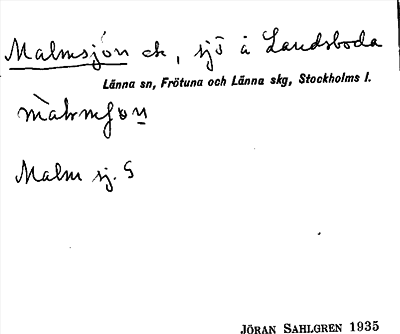 Malmsjön ck, sjö å Landsboda
Länna sn, Frötuna och Länna skg, Stockholms l.
Malm sj. S
JÖRAN SAHLGREN 1935